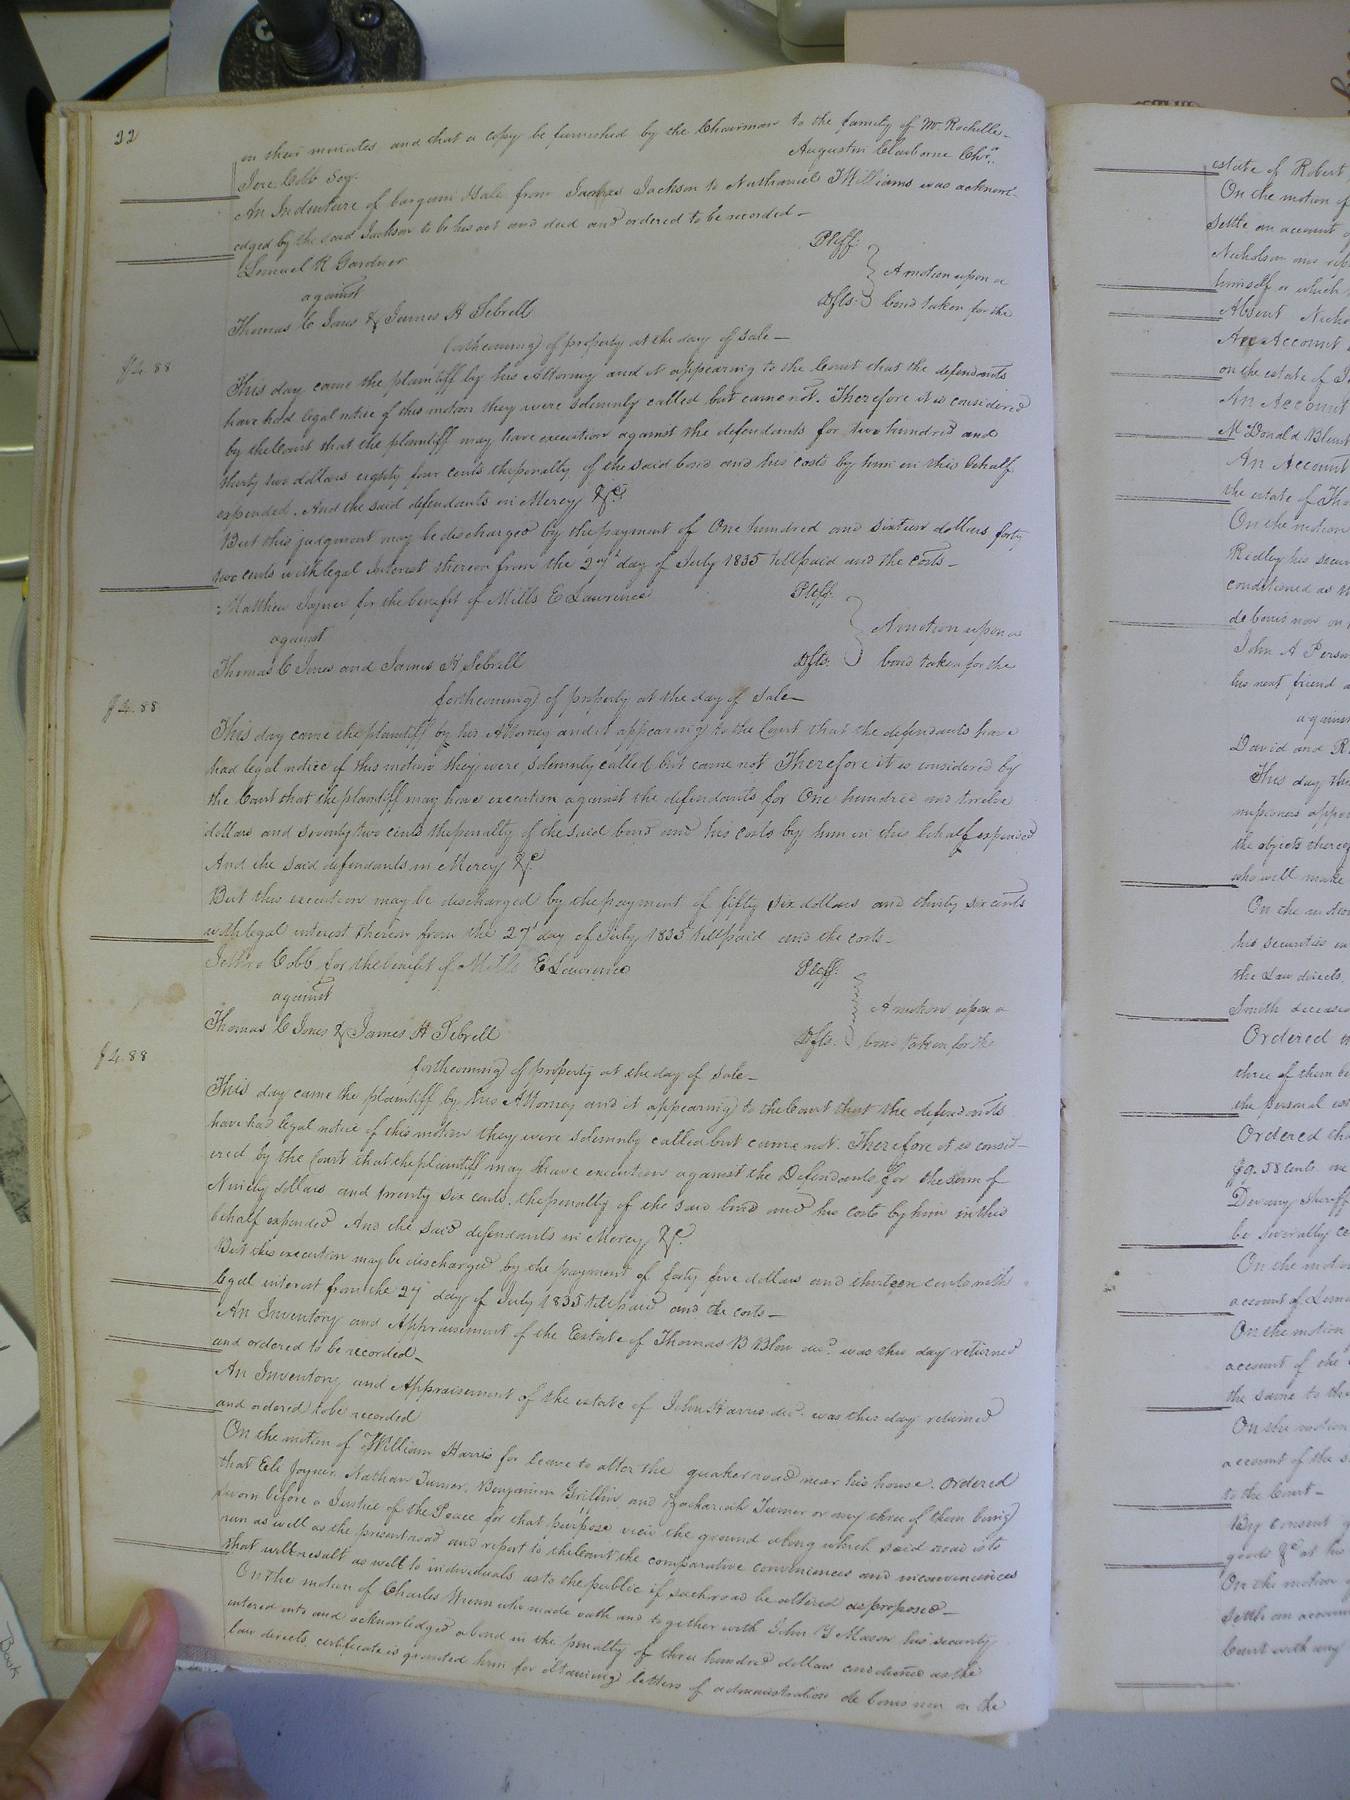 22
on their minutes and that a copy be furnished by the Chairman to the family of Mr Rochelle-
Augustin Claiborne Chrn.
Jere Cobb Secy.
An Indenture of bargain & sale from James Jackson to Nathaniel T Williams was acknowl-
edged by the said Jackson to be his act and deed and ordered to be recorded-
Lemuel R Gardner Pltff.
against A motion upon a
Thomas C Jones & James H Sebrell Dfts. bond taken for the
forthcoming of property at the day of sale-
$4.88
This day came the plaintiff by his Attorney and it appearing to the Court that the defendants
have had legal notice of this motion they were solemnly called but came not. Therefore it is considered
by the Court that the plaintiff may have execution against the defendants for two hundred and
thirty two dollars eighty four cents the penalty of the said bond and his costs by him in this behalf
expended. And the said defendants in Mercy &c.
But this judgment may be discharged by the payment of One hundred and sixteen dollars forty
two cents with legal interest thereon from the 27th day of July 1835 till paid and the costs-
Matthew Joyner for the benefit of Mills E Lawrence Pltff.
against A motion upon a
Thomas C Jones and James H Sebrell Dfts. bond taken for the
forthcoming of property at the day of sale-
$4.88
This day came the plaintiff by his Attorney and it appearing to the Court that the defendants have
had legal notice of this motion they were solemnly called but came not Therefore it is considered by
the Court that the plaintiff may have execution against the defendants for One hundred and twelve
dollars and seventy two cents the penalty of the said bond and his costs by him in this behalf expended
And the said defendants in Mercy &c.
But this execution may be discharged by the payment of fifty six dollars and thirty six cents
with legal interest thereon from the 27th day of July 1835 till paid and the costs-
Jethro Cobb for the benefit of Mills E Lawrence Pltff.
against A motion upon a
Thomas C Jones & James H Sebrell Dfts. bond taken for the
forthcoming of property at the day of sale-
$4.88
This day came the plaintiff by his Attorney and it appearing to the Court that the defendants
have had legal notice of this motion they were solemnly called but came not. Therefore it is consid-
ered by the Court that the plaintiff may have execution against the Defendants for the sum of
Ninety dollars and twenty six cents, the penalty of the said bond and his costs by him in this
behalf expended And the said defendants in Mercy &c.
But this execution may be discharged by the payment of forty five dollars and thirteen cents with
legal interest from the 27th day of July 1835 till paid and the costs-
An Inventory and Appraisement of the Estate of Thomas B Blow decd. was this day returned
and ordered to be recorded-
An Inventory and Appraisement of the estate of John Harris decd. was this day returned
and ordered to be recorded
On the motion of William Harris for leave to alter the quaker road near his house. Ordered
that Eli Joyner, Nathan Turner, Benjamin Griffin and Zachariah Turner or any three of them being
sworn before a Justice of the Peace for that purpose view the ground along which said road is to
run as well as the present road and report to the Court the comparative conveniences and inconveniences
that will result as well to individuals as to the public if such road be altered as proposed-
On the motion of Charles Wrenn who made oath and together with John Y Mason his security
entered into and acknowledged a bond in the penalty of three hundred dollars conditioned as the
law directs, certificate is granted him for obtaining letters of administration de bonis non on the
estate of Robert
On the motion of
Settle an account
Nicholson
himself
Absent
An Account
on the estate of
An Account
McDonald Blunt
An Account
the estate of
On the motion
Ridley his
conditioned as
de bonis non on
John A
his next friend
against
David and
This day
the objects
who will make
On the motion
his securities
the Law directs,
Smith deceased
Ordered
three of them
the personal
Ordered
$9.58 cents
Sheriff
be severally
On the motion
account of
On the motion
account of the
the same to the
On the motion
account of the
to the Court-
By consent
goods &c at his
On the motion
Settle an account
Court with any
Book